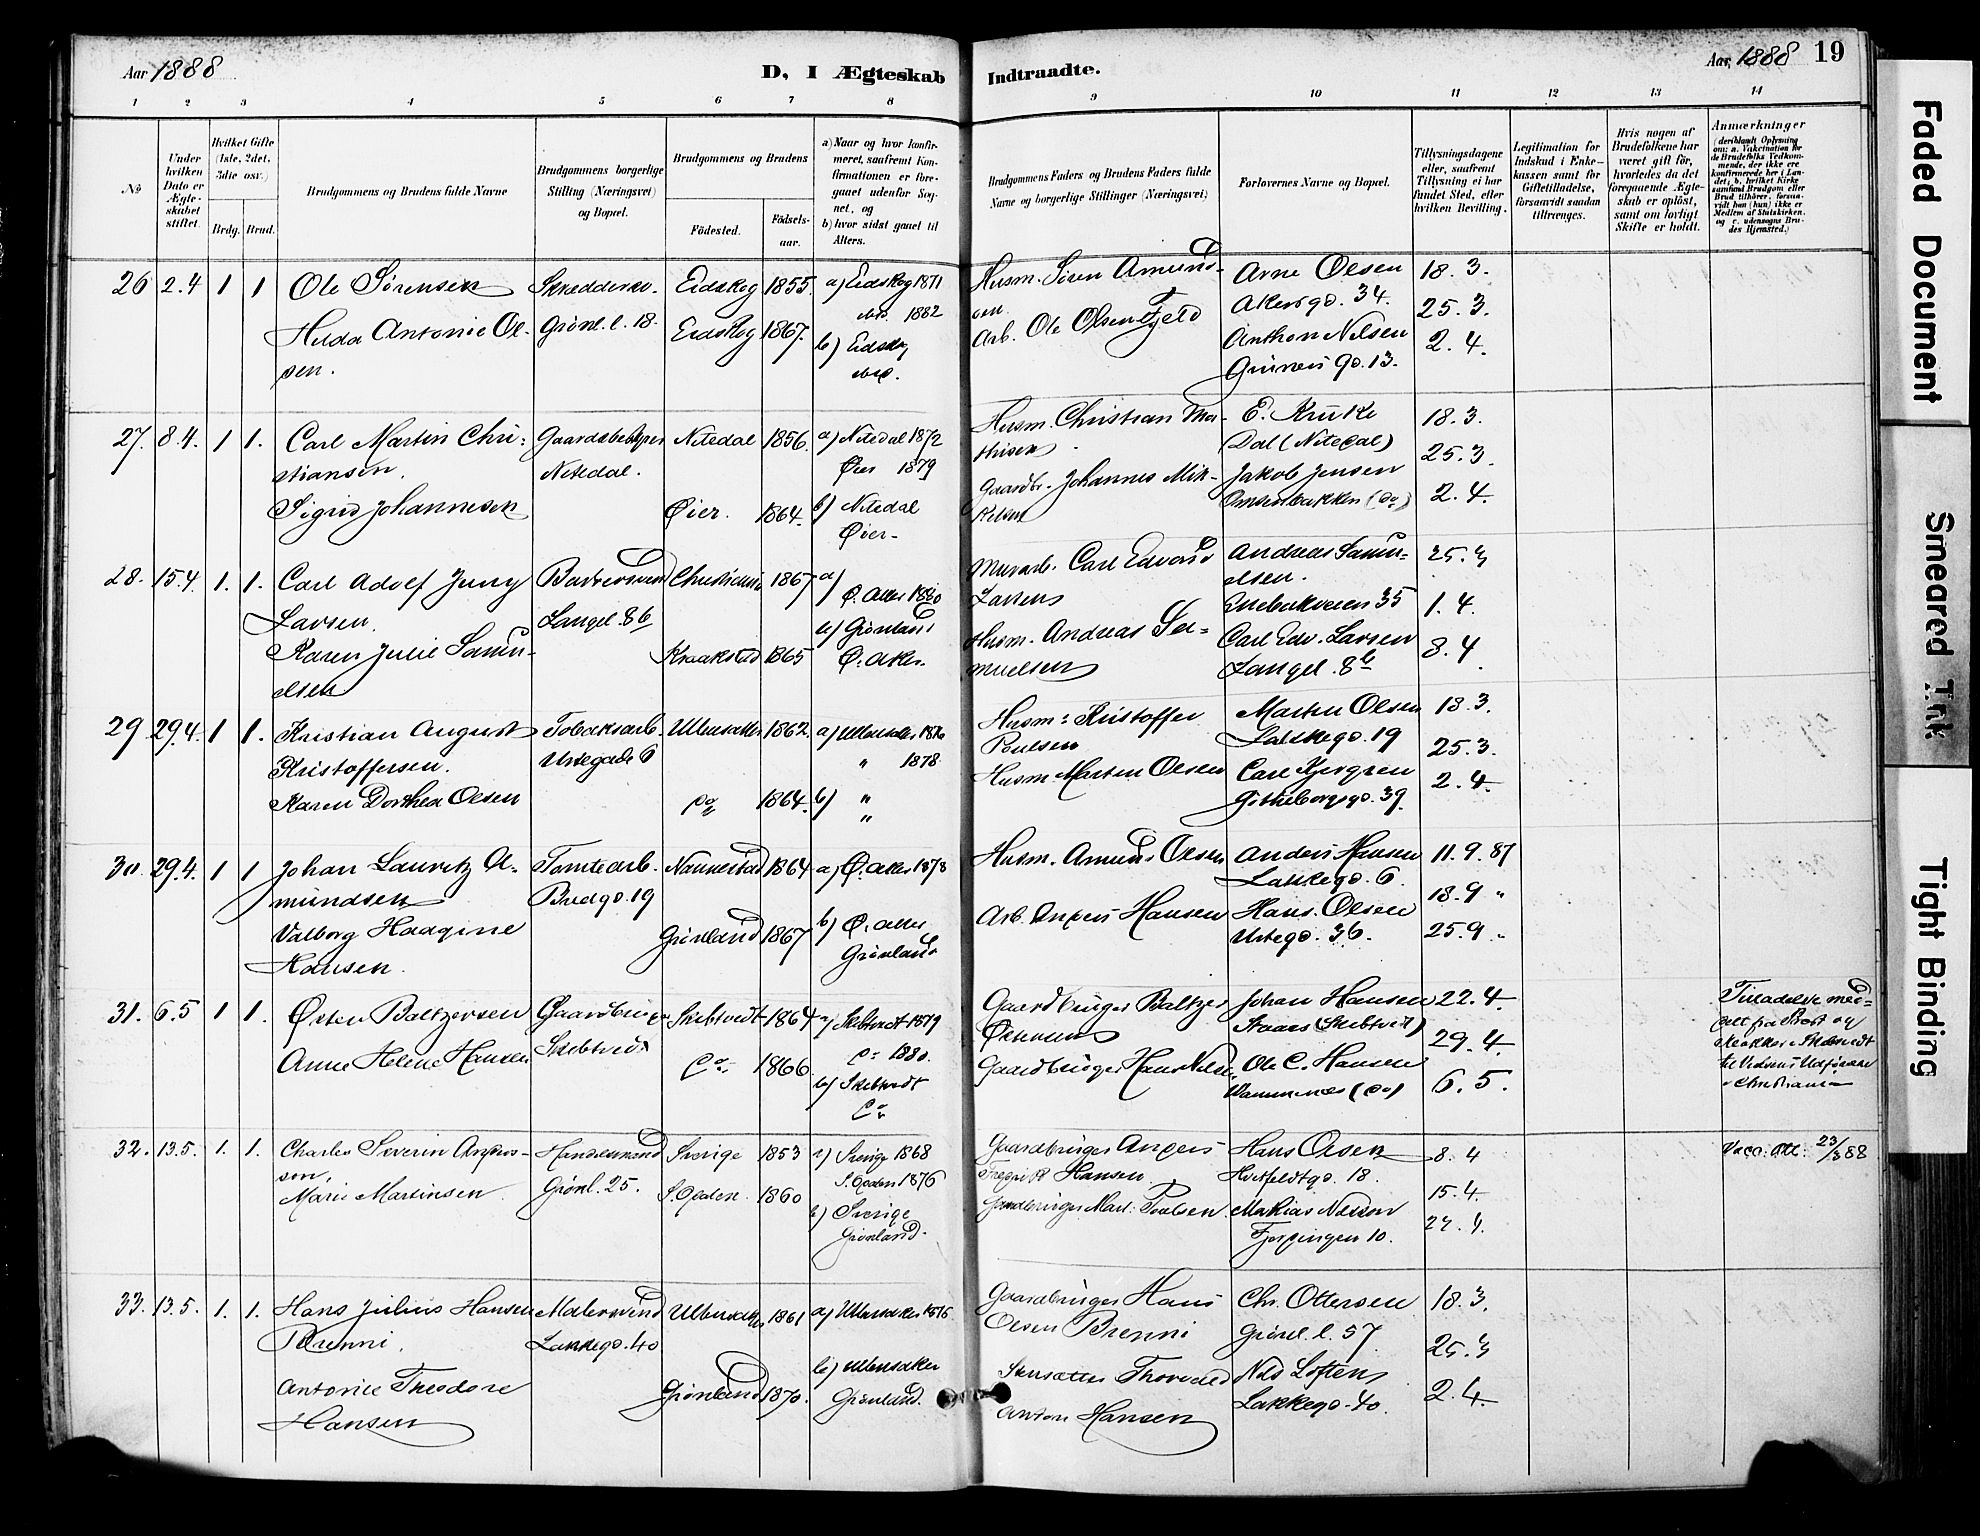 Aar 1888
D, I Ægteskab
Indtraadte.
Aar 1888 19
1 2 3 4 5 6 7 8 9 10 11 12 13 14
№
Under hvilken Dato er Ægteskabet stiftet
Hvilket Gifte (1ste, 2det, 3die osv.)
Brdg. Brud.
Brudgommens og Brudens fulde Navne
Brudgommens borgerlige Stilling (Næringsvei) og Bopæl.
Brudgommens og Brudens
Födested.
Födsels-aar.
a) Naar og hvor konfirmeret, saafremt Konfirmationen er foregaaet udenfor Sognet, og
b) hvor sidst gaaet til Alters.
Brudgommens Faders og Brudens Faders fulde Navne og borgerlige Stillinger (Næringsvei)
Forlovernes Navne og Bopæl.
Tillysningsdagene eller, saafremt Tillysning ei har fundet Sted, efter hvilken Bevilling.
Legitimation for Indskud i Enkekassen samt for Giftetilladelse, forsaavidt saadan tiltrænges.
Hvis nogen af Brudefolkene har været gift för, hvorledes da det foregaaende Ægteskab er oplöst, samt om lovligt Skifte er holdt.
Anmærkninger
26 2.4 1 1 Ole Sörensen
Hilda Antonie Olsen.
Skreddersv.
Grönl. l. 18.
Eidskog 1855.
Eidskog 1867.
a) Eidskog 1871
1882
b) Eidskog
Husm. Sören Amundsen
Arb. Ole Olsen Fjeld
Arne Olsen
Akersgd. 34.
Anthon Nilsen
Grünersgd. 13.
18. 3.
25. 3.
2. 4.
27. 8.4. 1 1. Carl Martin Christiansen.
Sigrid Johannesen
Gaardsbestyrer
Nitedal.
Nitedal 1856.
Öier. 1864.
a) Nitedal 1872
Öier 1879
b) Nitedal
Öier
Husm. Christian Mathisen
Gaardbr. Johannes Mikkelsen
E. Kruke
Dal (Nitedal)
Jakob Jensen
18. 3.
25. 3.
2. 4.
28. 15.4. 1. 1. Carl Adolf Juny
Larsen.
Karen Julie Samuelsen
Barbersvend
Langel. 8b
Christiania 1867
Kraakstad 1865
a)
Ö. Aker 1880
b) Grönland
Ö. Aker.
Murarb. Carl Edvard
Larsen
Husm. Andreas Samuelsen
Andreas Samuelsen.
Enebakveien 35
Carl Edv. Larsen
Langel. 8b
25. 3
1. 4.
8. 4
29. 29.4. 1 1. Kristian August
Kristoffersen.
Karen Dorthea Olsen
Tobaksarb.
Urtegade 6
Ullensaker 1862.
do 1864.
a) Ullensaker 1876
" 1878
b) "
"
Husm: Kristoffer
Poulsen
Husm. Morten Olsen
Morten Olsen
Lakkegd. 19
Carl Kjergren
Götheborgsgd. 39.
18. 3.
25. 3.
2. 4.
30. 29.4. 1 1 Johan Lauritz Amundsen
Valborg Haagine
Hansen.
Tomtearb.
Bredgd. 19
Nannestad 1864
Grönland 1867
a) Ö. Aker 1878
b) Ö. Aker
Grönland
Husm. Amund Olsen
Arb. Anders Hansen
Anders Hansen
Lakkegd. 6.
Hans. Olsen
Urtegd. 36.
11. 9. 87
18. 9 "
25. 9 "
31. 6.5 1 1. Östen Baltzersen
Anne Helene Hansen
Gaardbruger
Skibtvedt
Skibtvedt 1864
do 1866
a) Skibtvedt 1879
do 1880.
b) Skibtvedt
do
Gaardbruger Baltzer
Östensen
Gaardbruger Hans Nilsen
Johan Hansen
(Skibtvedt)
Ole C. Hansen
(do)
22. 4
29. 4.
6. 5.
Tilladelse meddelt fra Prost og
til Vielsens Udförelse
i Christiania
32. 13.5. 1. 1. Charles Severin Anderson.
Marie Martinsen
Handelsmand
Grönl. 25.
Sverige 1853
S. Odden 1860
a) Sverige 1868
S. Odden 1876
b) Sverige
Grönland.
Gaardbruger Anders
Fredrik Hansen.
Gaardbruger Mart. Poulsen
Hans Olsen
Hvitfeldtgd. 18.
Mathias Nilsson
Fjerdingen 10.
8. 4
15. 4.
22. 4.
Vacc. att. 23/3 88
33. 13.5. 1. 1. Hans Julius Hansen
Brenni.
Antonie Theodore
Hansen
Malersvend
Lakkegd. 40
Ullensaker 1861
Grönland 1870.
a) Ullensaker 1876
b) Ullensaker
Grönland.
Gaardbruger Hans
Olsen Brenni
Thorvald
Anton Hansen
Chr. Ottersen
Grönl. l. 57
Nils Loftens
Lakkegd. 40.
18. 3.
25. 3
2. 4.
Faded Document
Smeared Ink
Tight Binding